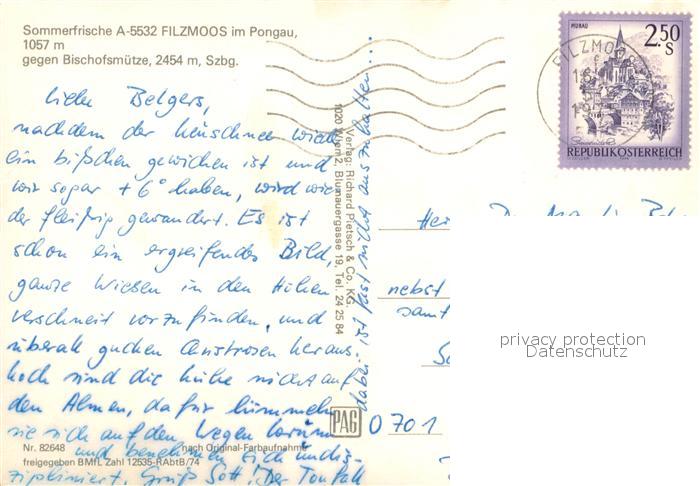 Sommerfrische A-5532 FILZMOOS im Pongau,
1057 m
gegen Bischofsmütze, 2454 m, Szbg.
Liebe Belgers,
nachdem der Neuschnee wieder
ein bißchen gewichen ist und
wir sogar +6° haben, wird wie-
der fleißig gewandert. Es ist
schon ein ergreifendes Bild,
ganze Wiesen in den Höhen
verschneit vorzufinden, und
überall gucken Christrosen heraus.
Noch sind die Kühe nicht auf
den Almen, dafür lümmeln
sie sich auf den Wegen herum
und benehmen sich undis-
zipliniert, Grüß Gott! Der Tonfall
dabei ist fast nicht auszuhalten...
Nr. 82648 nach Original-Farbaufnahme
freigegeben BMfL Zahl 12535-RAbtB/74
Verlag: Richard Pietsch & Co. KG.
1020 Wien 2, Blumauergasse 19, Tel. 24 25 84
PAG
MURAU
2.50
S
REPUBLIK ÖSTERREICH
FILZMOOS
nebst
samt
0701
privacy protection
Datenschutz